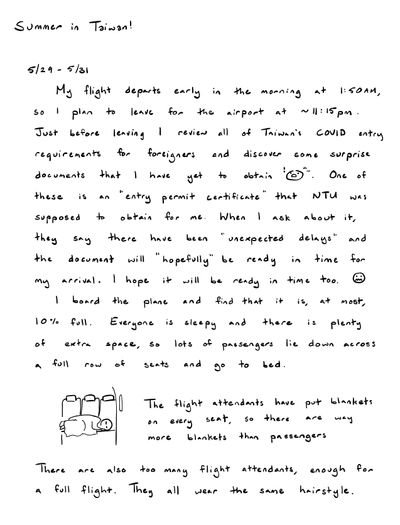 Summer in Taiwan!
5/29 - 5/31
My flight departs early in the morning at 1:50AM,
so I plan to leave for the airport at ~11:15pm.
Just before leaving I review all of Taiwan's COVID entry
requirements for foreigners and discover some surprise
documents that I have yet to obtain. One of
these is an "entry permit certificate" that NTU was
supposed to obtain for me. When I ask about it,
they say there have been "unexpected delays" and
the document will "hopefully" be ready in time for
my arrival. I hope it will be ready in time too.
I board the plane and find that it is, at most,
10% full. Everyone is sleepy and there is plenty
of extra space, so lots of passengers lie down across
a full row of seats and go to bed.
The flight attendants have put blankets
on every seat, so there are way
more blankets than passengers
There are also too many flight attendants, enough for
a full flight. They all wear the same hairstyle.